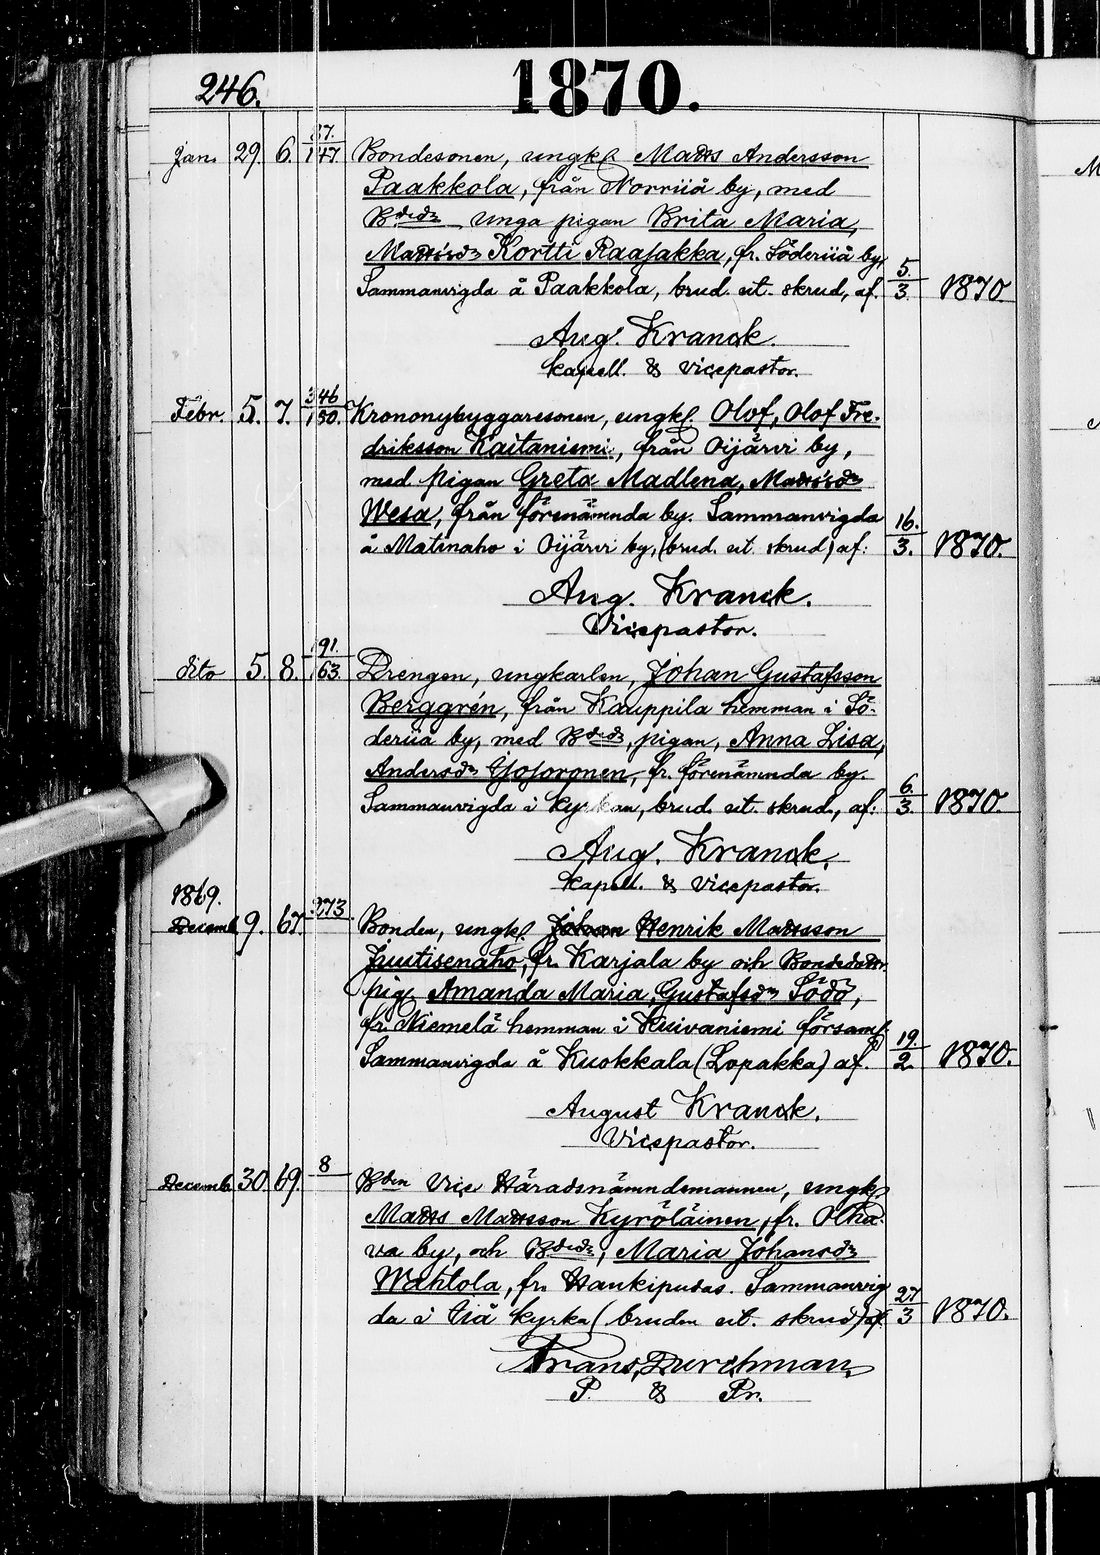 246.
1870.
Jan. 29. 6. 37. 147. Bondesonen, ungk. Matts Andersson
Paakkola, från Norriiå by, med
Bdedr unga pigan Brita Maria,
Mattsdr Kortti Raasakka, fr. Söderiiå by,
Sammanvigda å Paakkola, brud. ut. skrud, af. 5. 3. 1870
Aug. Kranck.
kapell. & vicepastor.
Febr. 5. 7. 346 150. Krononybyggaresonen, ungk. Olof, Olof Fre-
driksson Kaitaniemi, från Oijärvi by,
med pigan Greta Madlena, Mattsdr
Wesa, från förenämnda by. Sammanvigda
å Matinaho i Oijärvi by, (brud. ut. skrud) af: 16. 3. 1870.
Aug. Kranck.
Vicepastor.
dito 5. 8. 191. 163. Drengen, ungkarlen, Johan Gustafsson
Berggrén, från Kauppila hemman i Sö-
deriiå by, med Bdedr, pigan, Anna Lisa,
Andersdr, fr. förenämnda by.
Sammanvigda i kyrkan, brud. ut. skrud, af: 6. 3. 1870.
Aug. Kranck,
kapell. & vicepastor.
1869.
Decemb. 9. 67. 373. Bonden, ungk. Johan Henrik Mattsson
Juutisenaho, fr. Karjala by och Bondedottr.
pig. Amanda Maria, Gustafsdr Södö,
fr. Niemelä hemman i Kuivaniemi församl.
Sammanvigda å Kuokkala (Lopakka) af. 19. 2. 1870.
August Kranck.
Vicepastor.
Decemb. 30. 69. 8 Bden Vice Häradsnämndemannen, ungk.
Matts Mattsson Kyröläinen, fr. Olha-
va by, och Bdedr, Maria Johansdr
Wahtola, fr. Haukipudas. Sammanvig
da i Iiå kyrka (bruden ut. skrud) af. 27 3 1870.
Frans Durchman
P. & Pr.